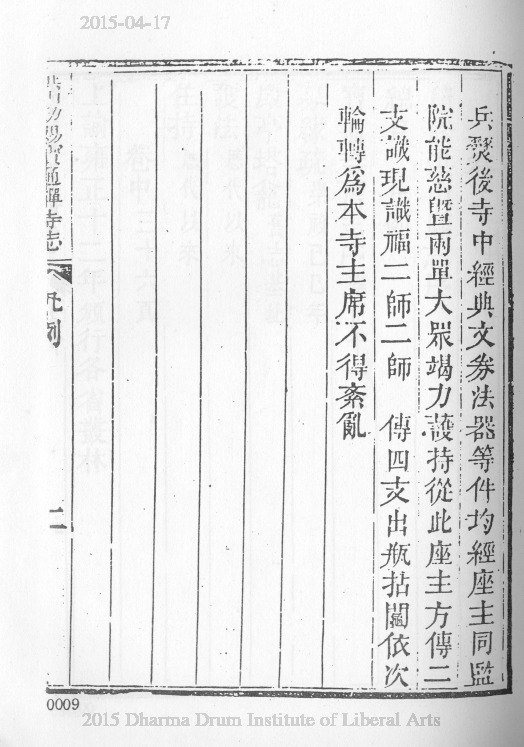 2015-04-17
兵燹後寺中經典文券法器等件均經座主同監
院能慈暨兩單大衆竭力護持從此座主方傳二
支識現識福二師二師　傳四支出瓶拈鬮依次
輪轉爲本寺主席不得紊亂
賜寶通禪寺志
凡例
二
0009
2015 Dharma Drum Institute of Liberal Arts